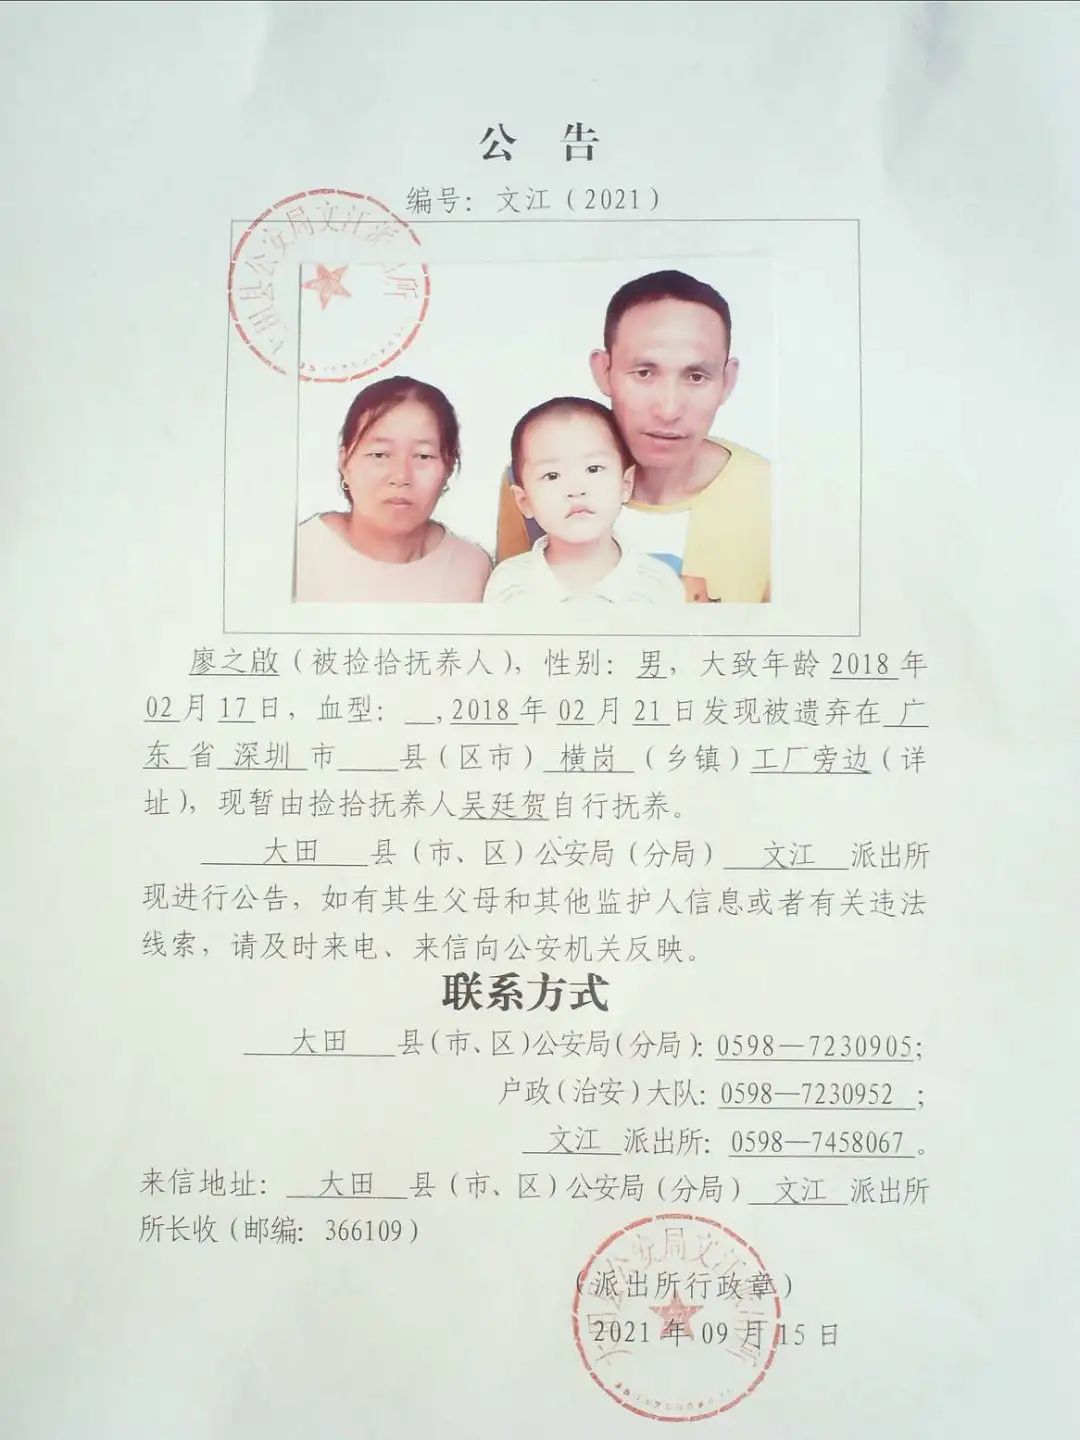 公 告
编号: 文江(2021)
田县公安局文江派 所
廖之啟(被捡拾抚养人), 性别: 男, 大致年龄 2018 年
02 月 17 日, 血型: __,2018 年 02 月 21 日发现被遗弃在 广
东 省 深圳 市____县(区市) 横岗 (乡镇)工厂旁边(详
址), 现暂由捡拾抚养人吴廷贺自行抚养。
大田 县(市、区)公安局(分局) 文江 派出所
现进行公告, 如有其生父母和其他监护人信息或者有关违法
线索, 请及时来电、来信向公安机关反映。
联系方式
大田 县(市、区)公安局(分局): 0598—7230905;
户政(治安)大队: 0598—7230952 ;
文江 派出所: 0598—7458067 。
来信地址: 大田 县(市、区)公安局(分局) 文江 派出所
所长收(邮编: 366109)
(派出所行政章)
2021 年 09 月 15 日